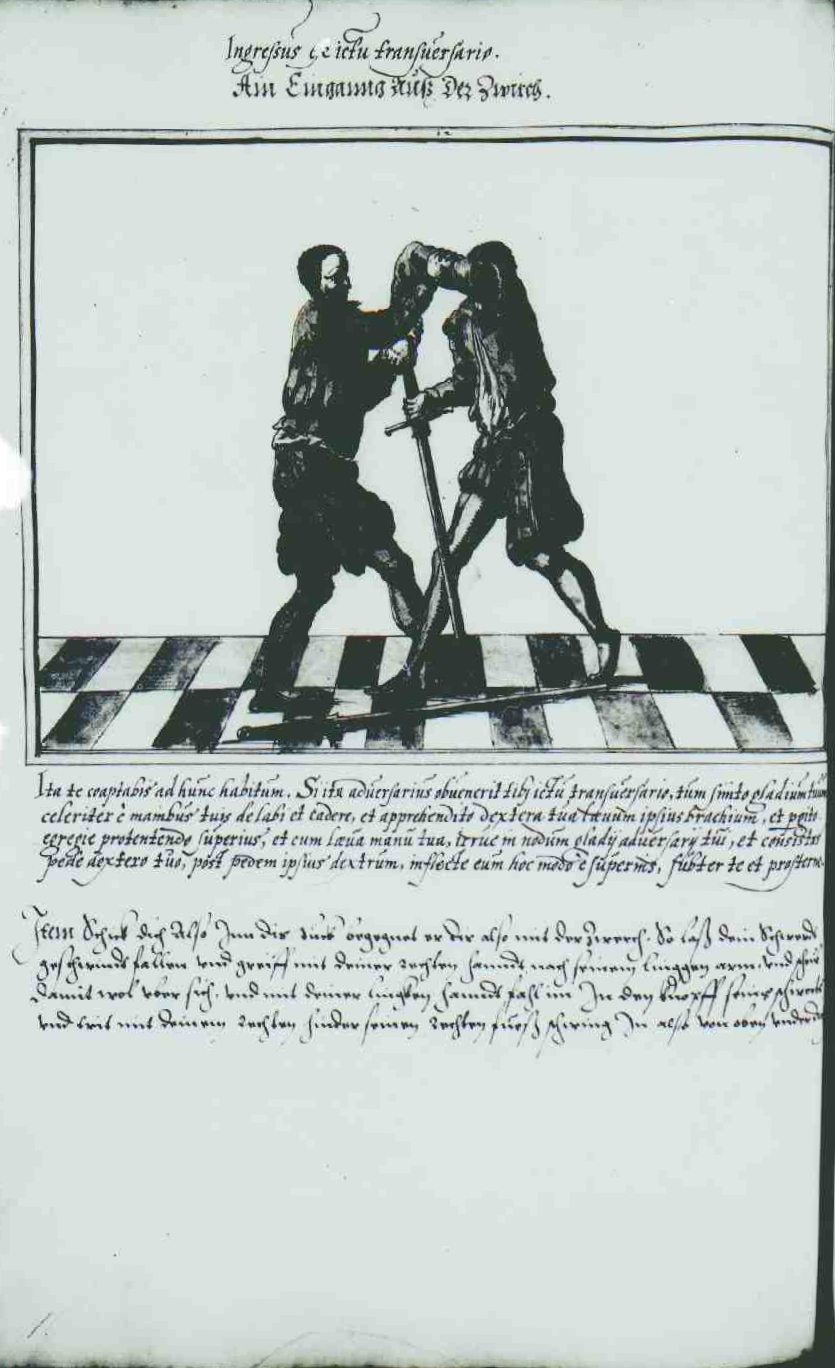 Ingressus ex ictu transuersario.
Ain Einganng Auß Der Zwirch.
Ita te coaptabis ad hunc habitum. Si ita aduersarius obuenerit tibj ictu transuersario, tum sinito gladium tuum
celeriter è manibus tuis delabi et cadere, et apprehendito dextera tua læuum ipsius brachium, et
egregie protentendo superius, et cum læua manu tua, irrue in nodum gladij aduersarij tui, et consistas
pede dextero tuo, post pedem ipsius dextrum, inflecte eum hoc modo è supernis, subter te et
Item Schick dich Also Inn dis begegnet er dir also mit der Zwerch. So laß dein Schwerdt
geschwindt fallen vnd greiff mit deiner rechten hanndt nach seinem linggen arm, vnd
damit wol vber sich. vnd mit deiner linggken hanndt fahl im In den knopff seines
vnd trit mit deinem rechten hinder seinen rechten fueß schwing In also von oben